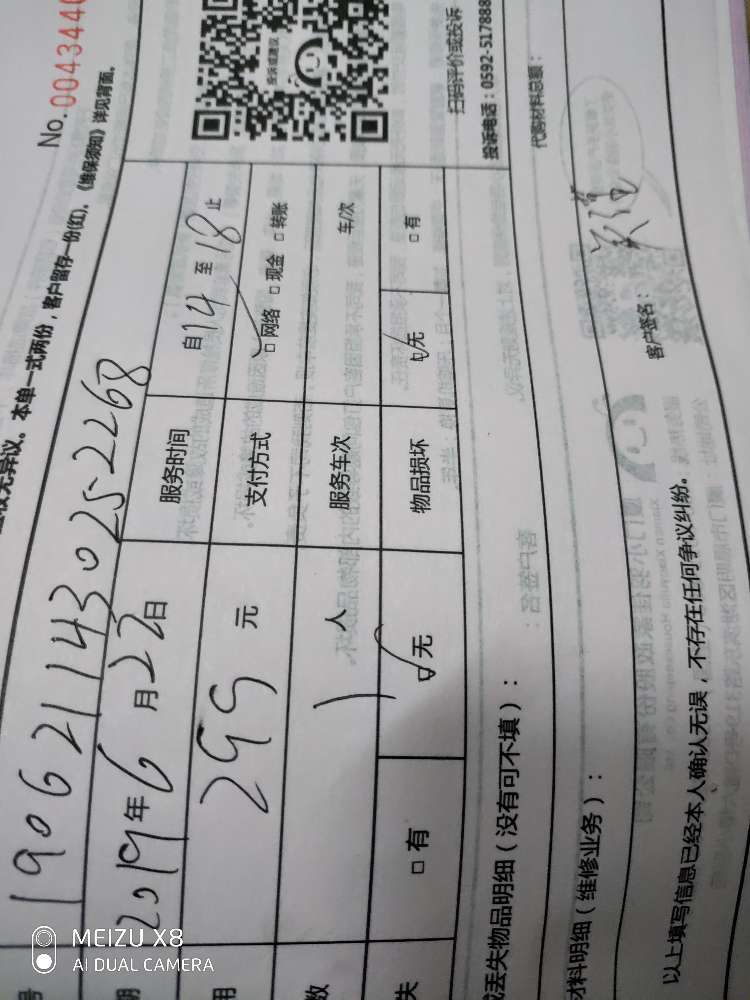 No.0043440
验收无异议。本单一式两份，客户留存一份(红)。《维保须知》详见背面。
号 190621143025-2268
期 2019年6月22日 服务时间 自14至18止
用 299元 支付方式 ☑网络 □现金 □转账
数 1人 服务车次 车/次
失 □有 ☑无 物品损坏 ☑无 □有
投诉或建议
扫码评价或投诉
投诉电话：0592-517888
或丢失物品明细（没有可不填）：
材料明细（维修业务）： 代购材料总额：
以上填写信息已经本人确认无误，不存在任何争议纠纷。 客户签名：
MEIZU X8
AI DUAL CAMERA